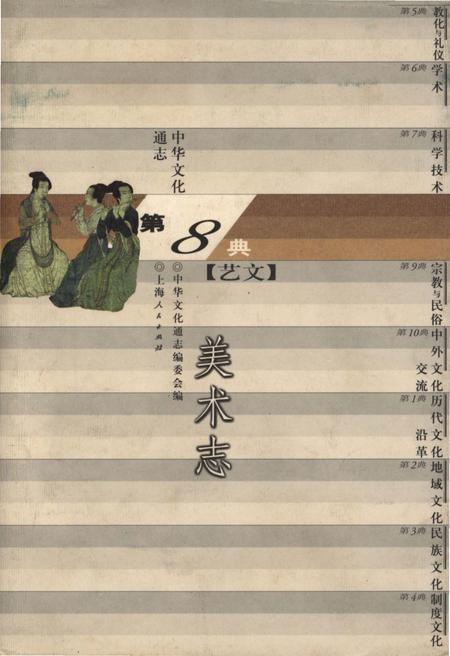 第5典
教化与礼仪
第6典
学术
第7典
科学技术
中华文化
通志
第8典
【艺文】
◎中华文化通志编委会编
◎上海人民出版社
美术志
第9典
宗教与民俗
第10典
中外文化
交流
第1典
历代文化
沿革
第2典
地域文化
第3典
民族文化
第4典
制度文化